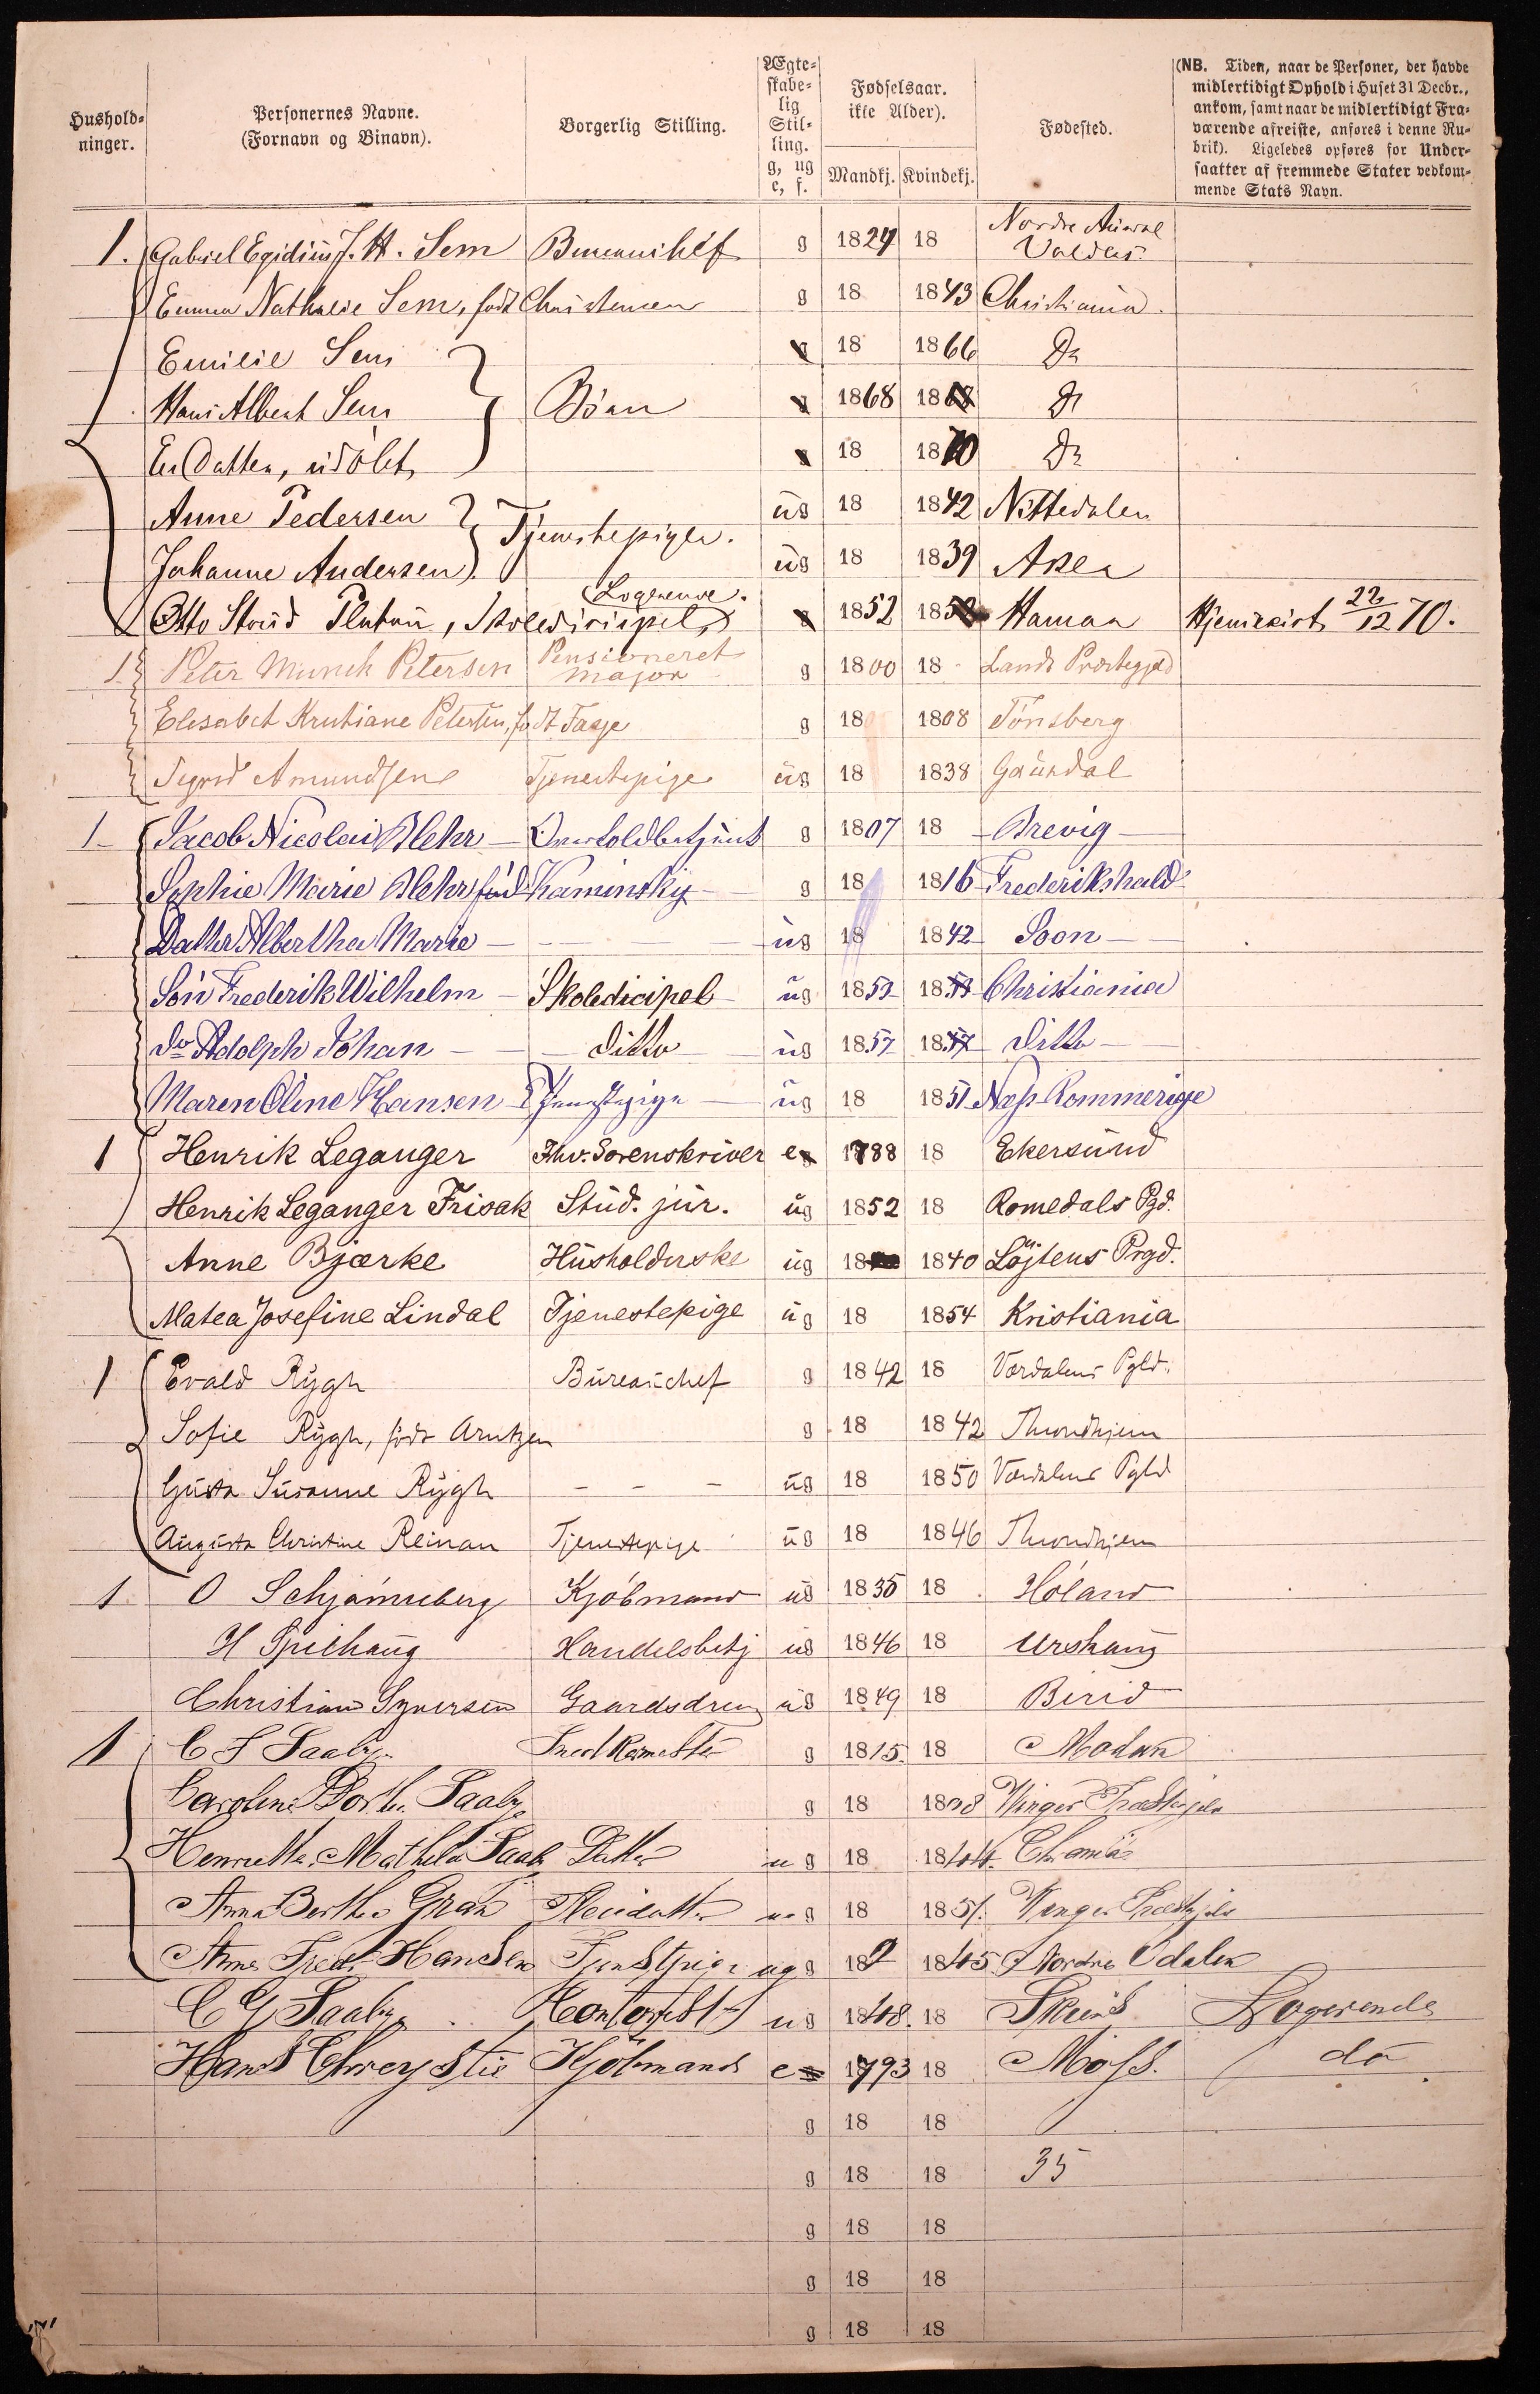 Hushold-
ninger.
Personernes Navne.
(Fornavn og Binavn).
Borgerlig Stilling.
Ægte-
skabe-
lig
Stil-
ling.
g, ug
e, f.
Fødselsaar.
ikke Alder).
Mandkj. Kvindekj.
Fødested.
(NB. Tiden, naar de Personer, der havde
midlertidigt Ophold i Huset 31 Decbr.,
ankom, samt naar de midlertidigt Fra-
værende afreiste, anføres i denne Ru-
brik). Ligeledes opføres for Under-
saatter af fremmede Stater vedkom-
mende Stats Navn.
1. Gabriel Egidius J. H. Sem g 1824 18 Nordre Valders
Emma Nathalie Sem, født Christensen g 18 1843 Christiania.
Emilie Sem 18 1866 Do
Hans Albert Sem Börn 1868 18 Do
En Datter, udöbt, 18 1870 Do
Anne Pedersen Tjenestepiger. ug 18 1842 Nittedalen
Johanne Andersen ug 18 1839 Asker
Otto Strud Platou, Skoledisipel, Logerende. 1852 18 Hamar Hjemreist 22/12 70.
1 Peter Munch Petersen Pensioneret Major g 1800 18 Lands Præstegjeld
Elisabet Kristiane Petersen, født Fasje g 18 1808 Tönsberg
Sigrid Amundsen Tjenestepige ug 18 1838 Gausdal
1 Jacob Nicolai Blehr Overtoldbetjent g 1807 18 Brevig
Sophie Marie Blehr född Kaminsky g 18 1816 Frederikshald
Datter Albertha Marie ug 18 1842 Soon
Sön Frederik Wilhelm Skoledicipel ug 1853 18 Christiania
do Adolph Johan ditto ug 1857 1857 ditto
Maren Oline Hansen Tjenestepige ug 18 1851 Næs Rommerige
1 Henrik Leganger Fhv. Sorenskriver e 1788 18 Ekersund
Henrik Leganger Frisak Stud. jur. ug 1852 18 Romedals Pgd.
Anne Bjærke Husholderske ug 18 1840 Løjtens Prgd.
Matea Josefine Lindal Tjenestepige ug 18 1854 Kristiania
1 Evald Rygh Bureauchef g 1842 18 Værdalens Pgld.
Sofie Rygh, född Arntzen g 18 1842 Throndhjem
Gusta Susanne Rygh - - - ug 18 1850 Værdalens Pgld
Augusta Christine Reinan Tjenestepige ug 18 1846 Throndhjem
1 O Schjönneberg Kjöbmand ug 1835 18 Höland
H Spilhaug Handelsbetj ug 1846 18 Urskaug
Christian Syversen Gaardsdreng ug 1849 18 Birid
1 C F Saaby g 1815 18 Modum
Caroline Dorth. Saaby g 18 1808 Vinger Præstegjeld
Henriette Mathilde Saaby Datter ug 18 1844 Chrania
Anna Berthe Gran Pleiedatter ug 18 1851. Vinger Præstegjeld
Anne Fred. Hansen Tjenstpige ug g 18 1845 Nordre Odalen
C G Saaby Contorist ug 1848. 18 Logerende
Hans Chrystie Kjöbmand e 1793 18 Moss. do
g 18 18
g 18 18 35
g 18 18
g 18 18
g 18 18